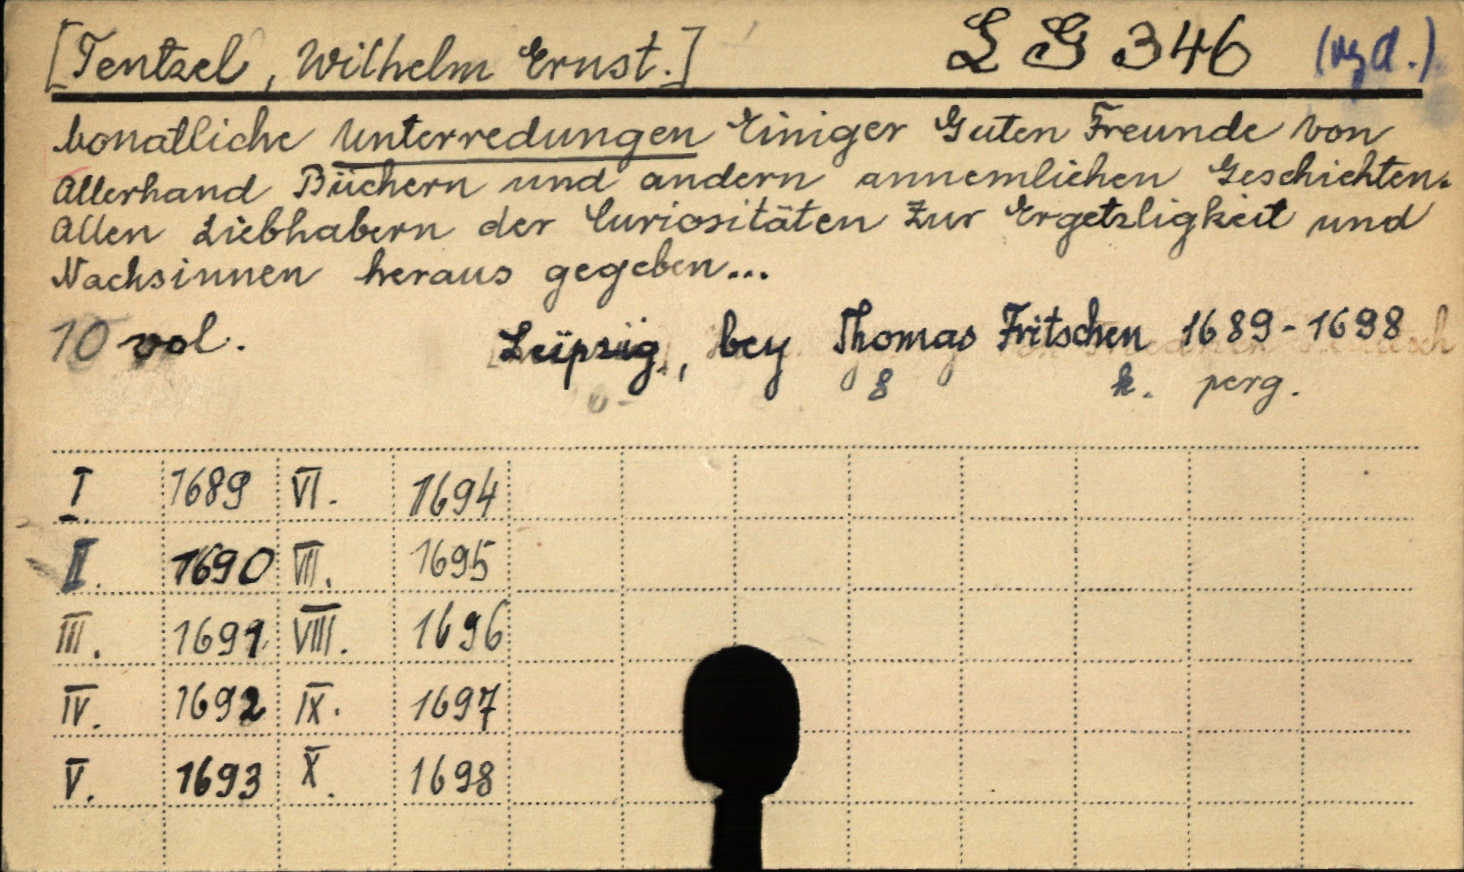 [Tentzel, Wilhelm Ernst.] LG 346
Monatliche Unterredungen Einiger Guten Freunde von
Allerhand Büchern und andern annemlichen Geschichten.
Allen Liebhabern der Curiositäten Zur Ergetzligkeit und
Nachsinnen heraus gegeben...
10 vol. Leipzig, bey Thomas Fritschen 1689-1698
8 k. perg.
I. 1689 VI. 1694
II. 1690 VII. 1695
III. 1691 VIII. 1696
IV. 1692 IX. 1697
V. 1693 X. 1698